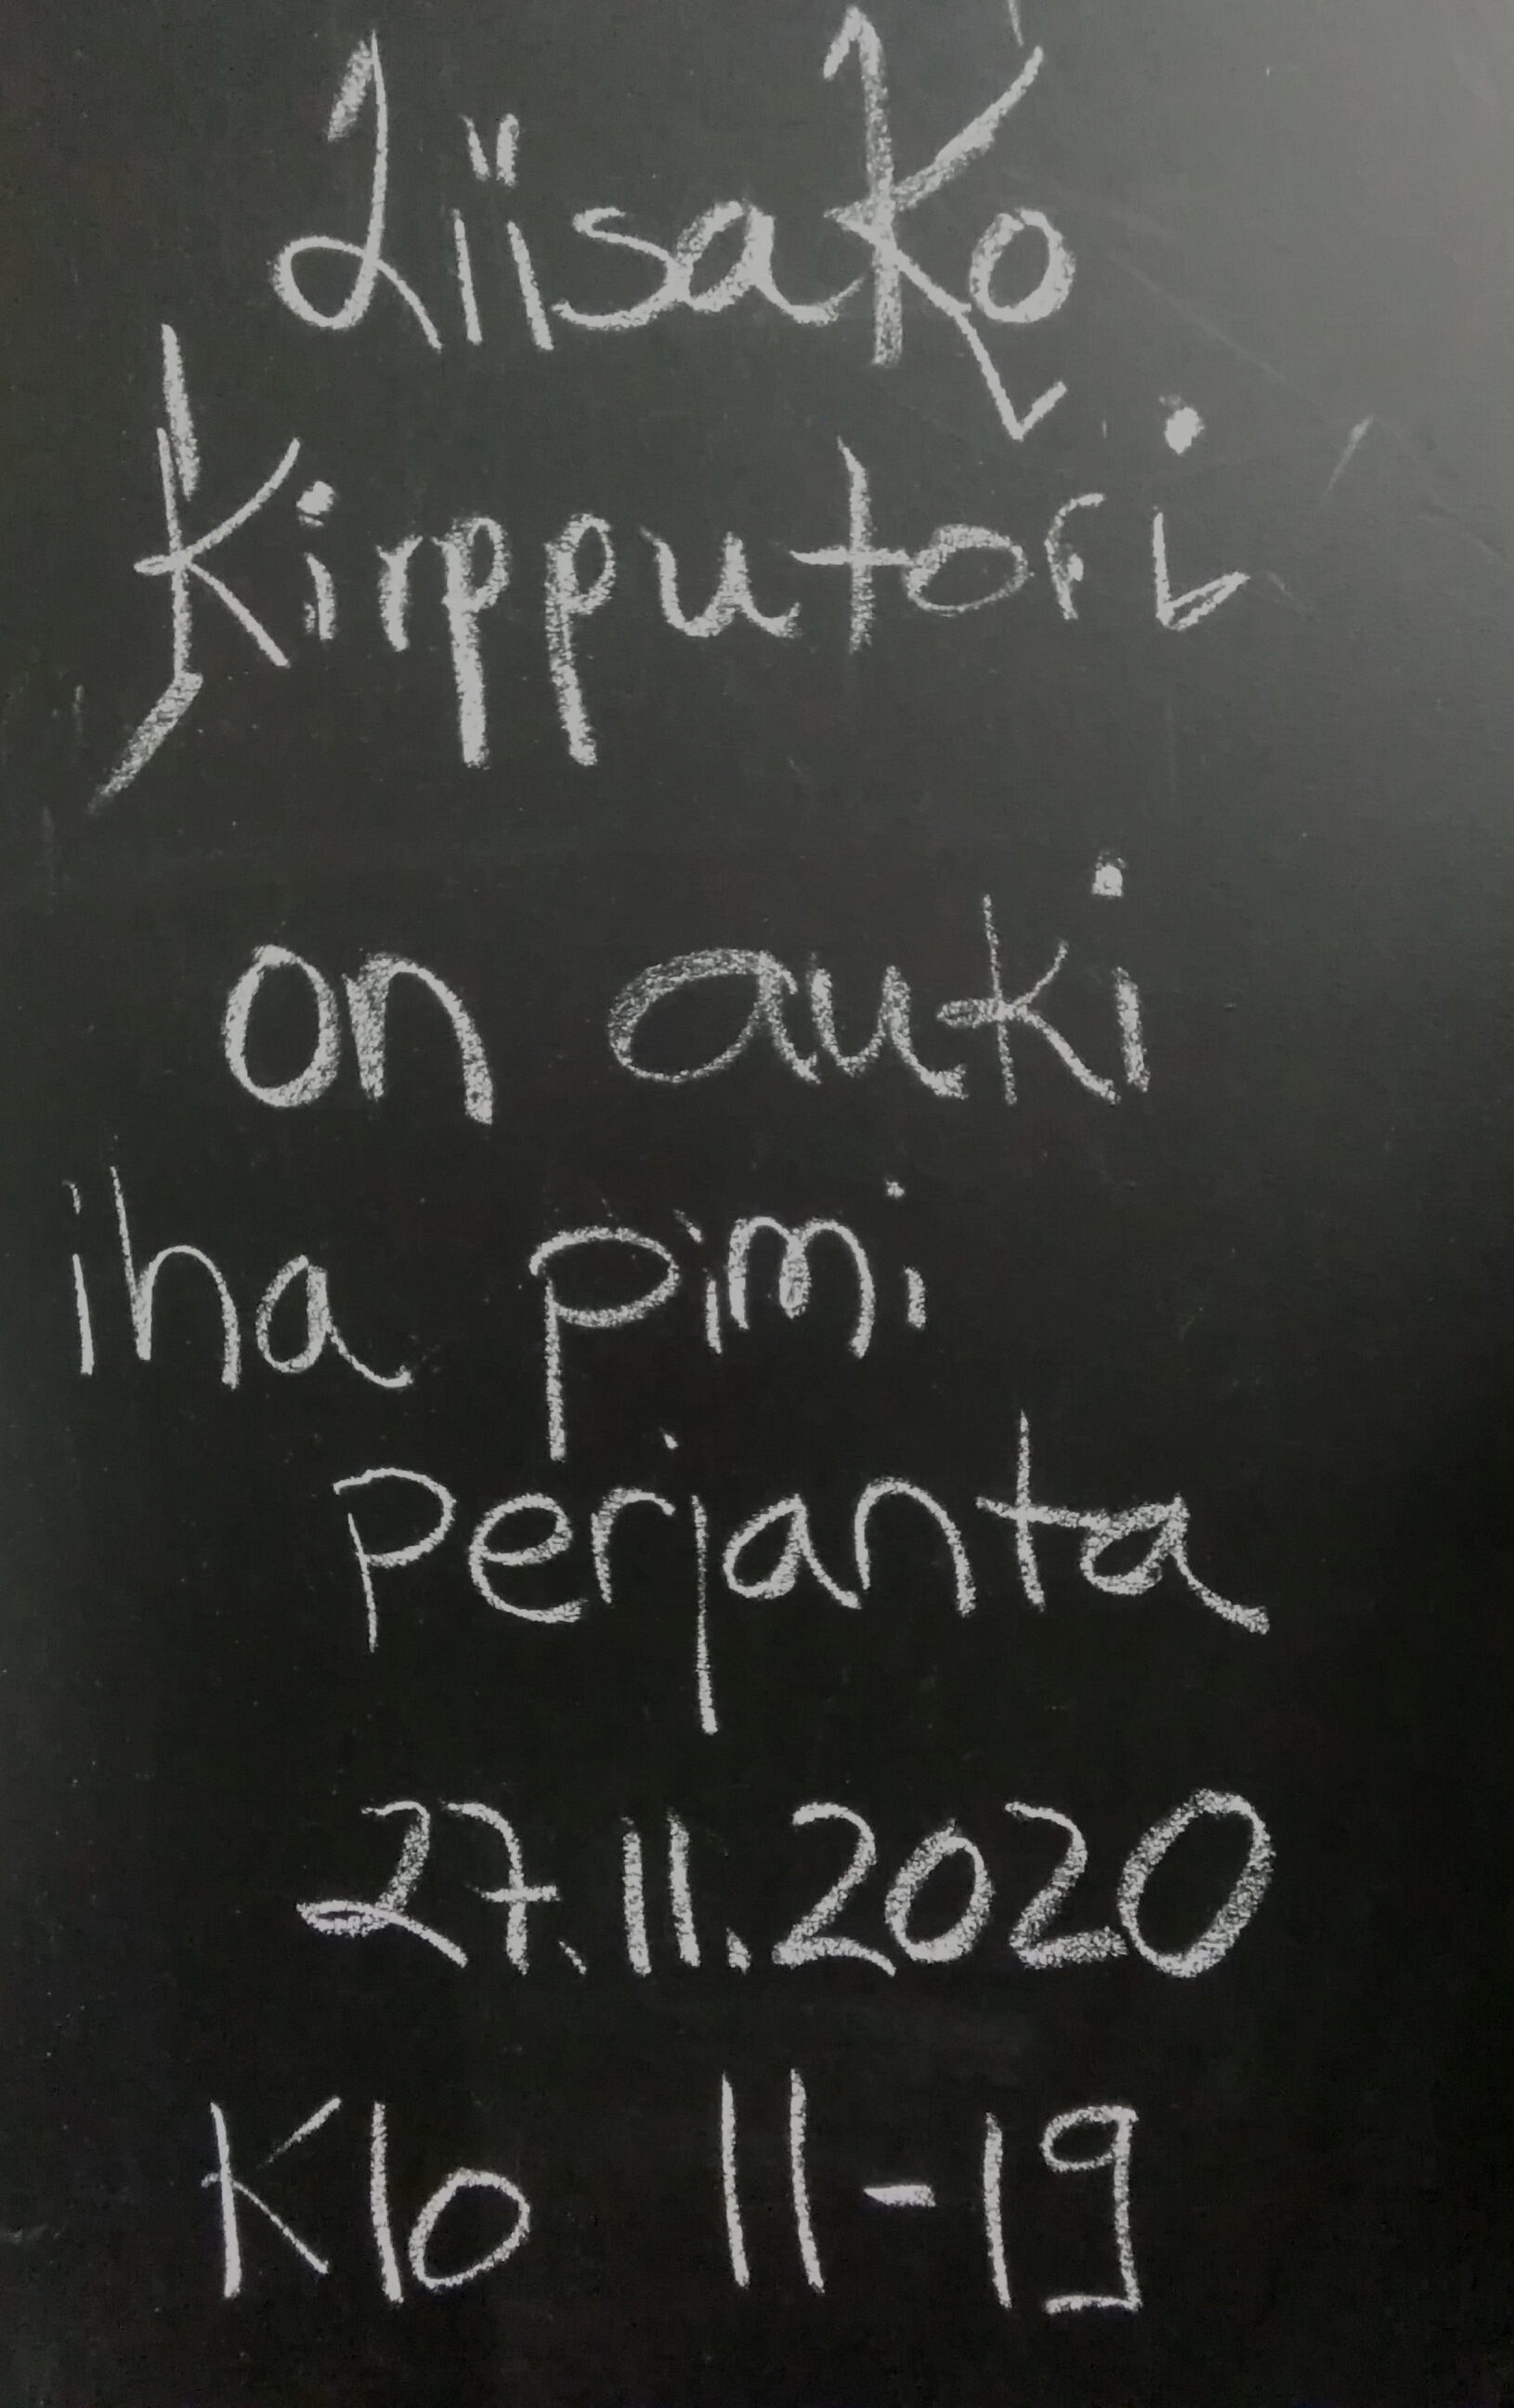 LiisaKo
Kirpputori
on auki
iha pimi
Perjanta
27.11.2020
Klo 11-19